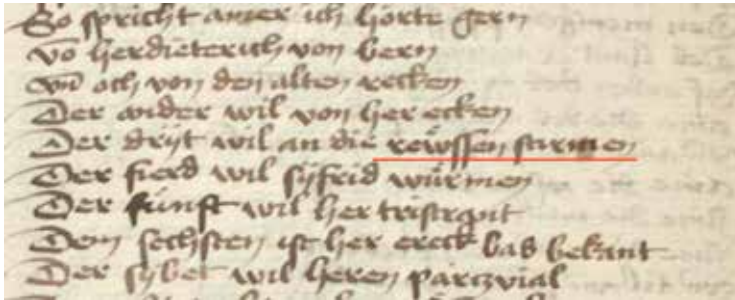 So spricht ainer ich horte gern
vō her dieterich von bern
vnd och von den alten recken
Der ander wil von her ecken
Der drijt wil an die rewssen sturmen
Der fierd wil sijfrid wúrmen
Der fúnft wil her tristrant
Dem sechsten ist her erck bas bekant
Der sybet wil heren parcivial